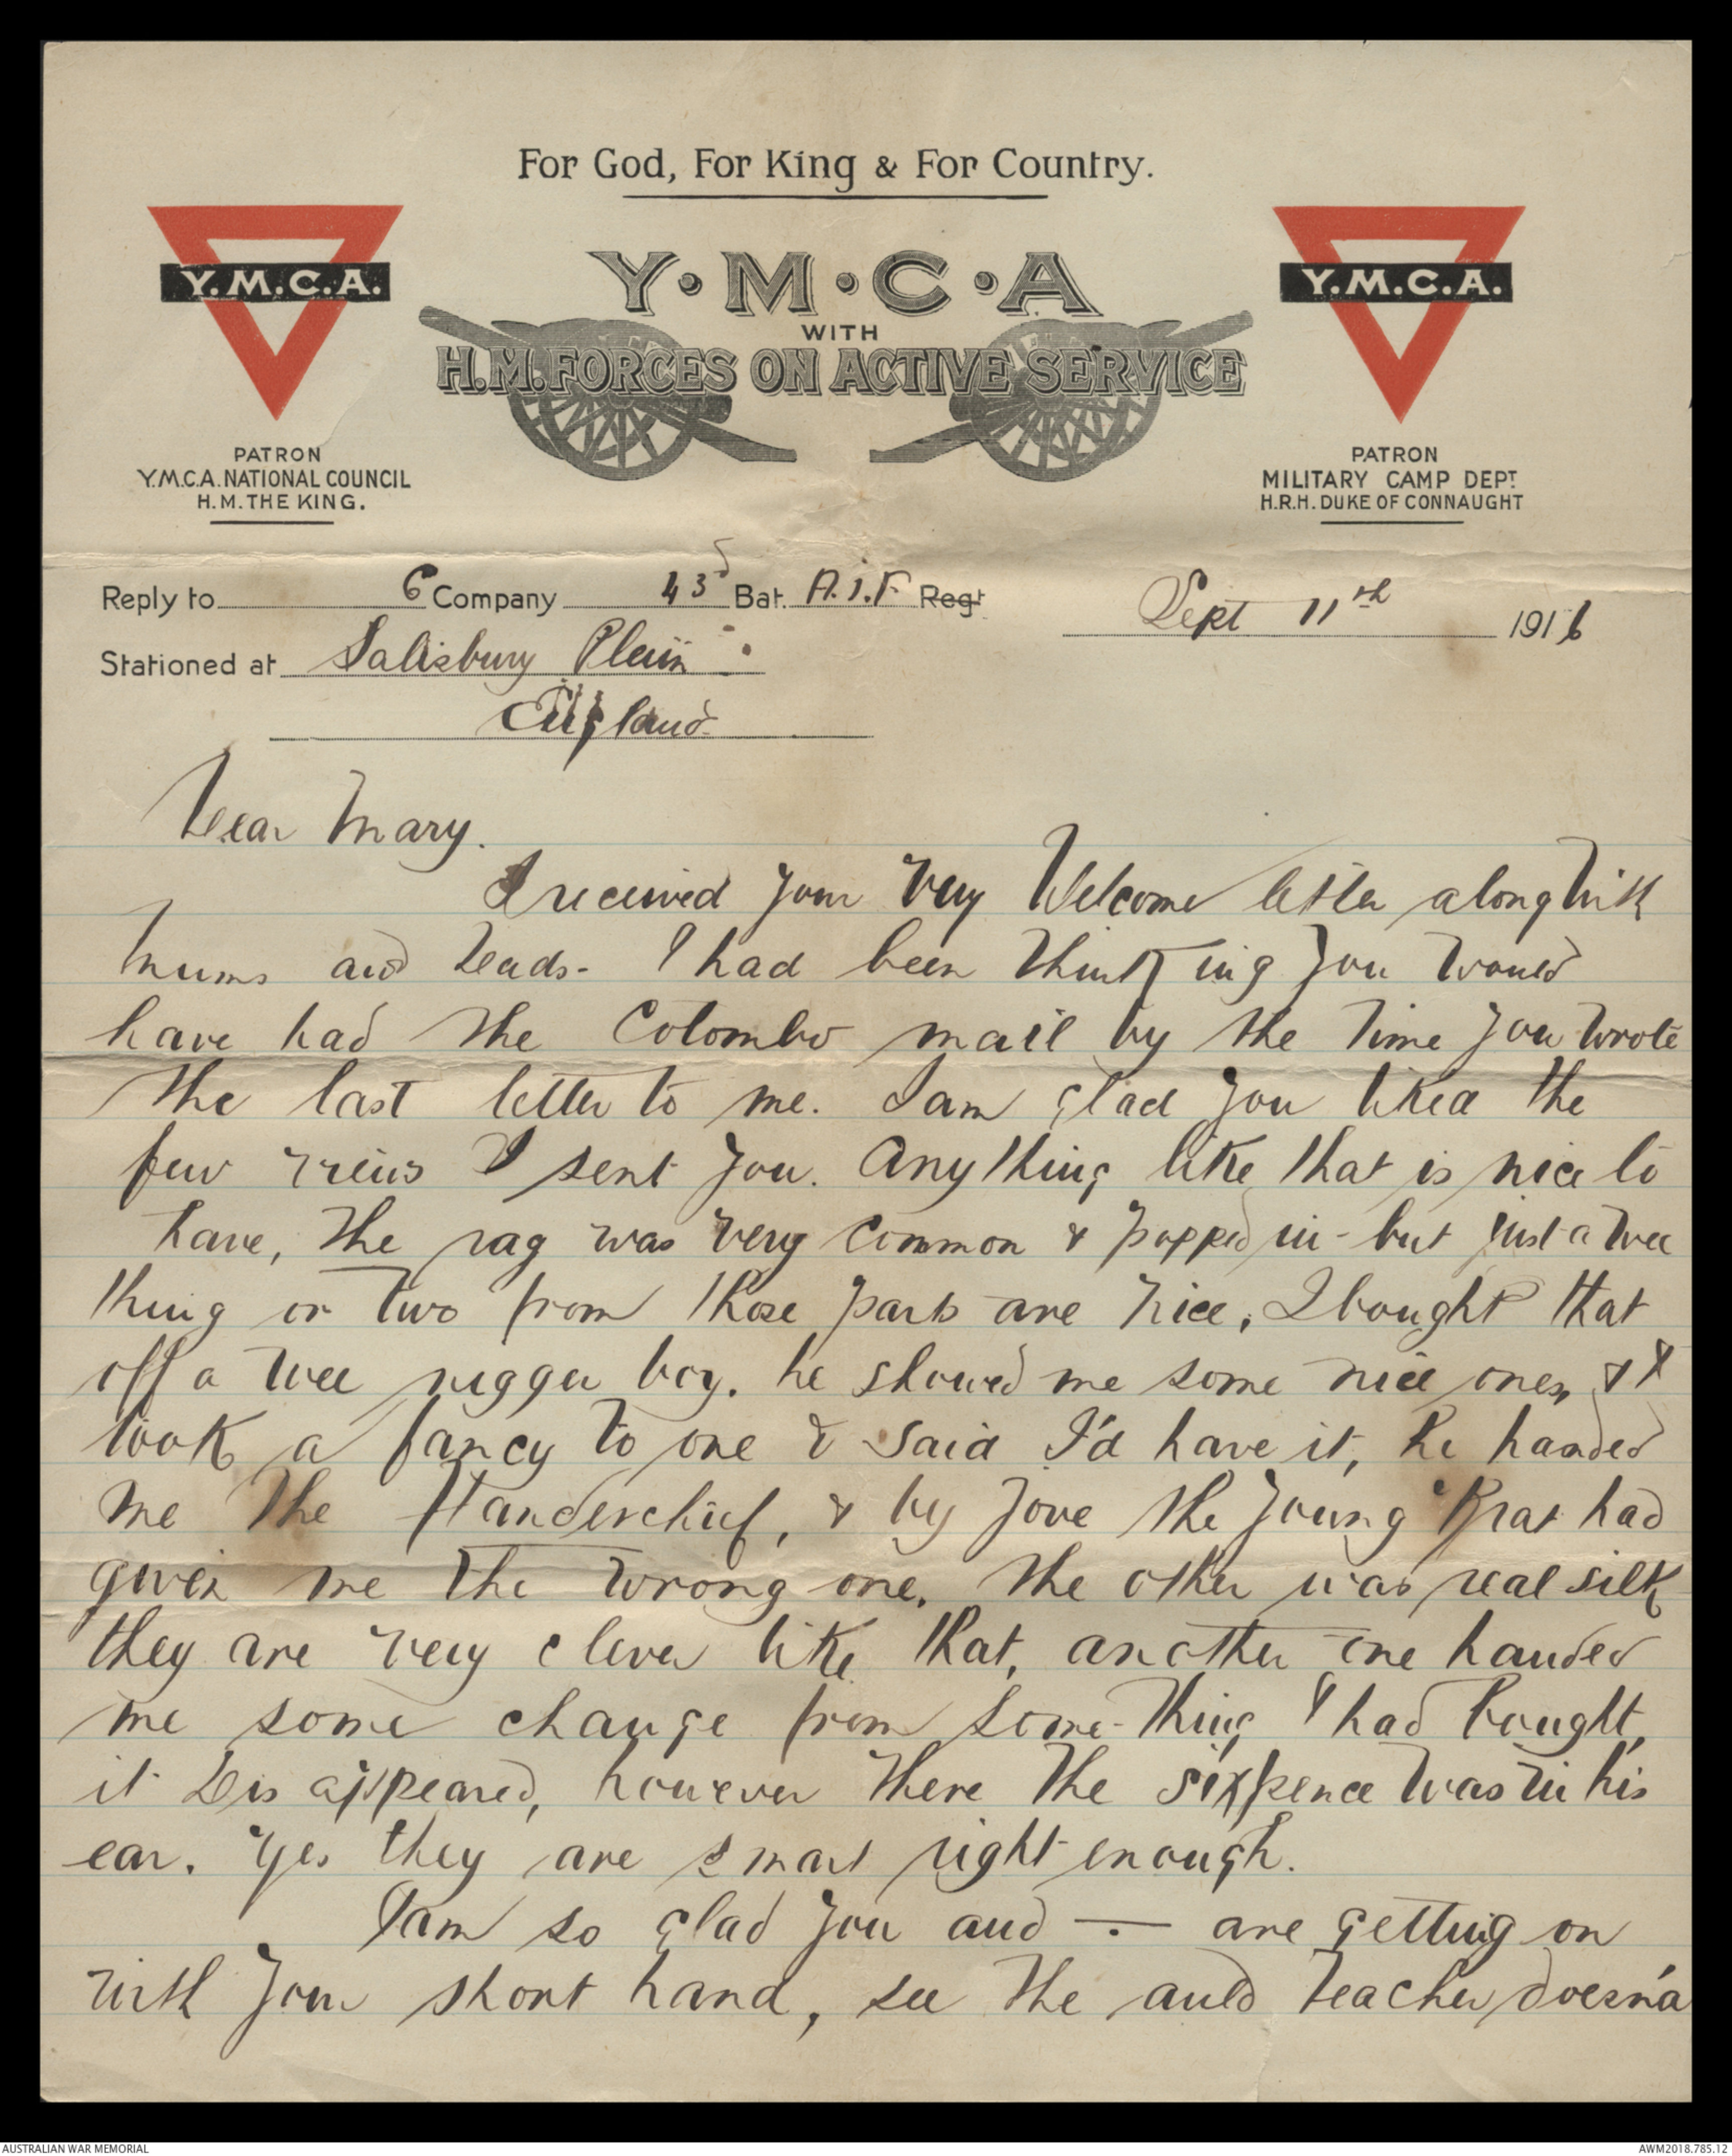 For God, For King & For Country.
Y.M.C.A.
Y.M.C.A
WITH
H.M. FORCES ON ACTIVE SERVICE
Y.M.C.A.
PATRON
Y.M.C.A. NATIONAL COUNCIL
H.M. THE KING.
PATRON
MILITARY CAMP DEPT
H.R.H. DUKE OF CONNAUGHT
Reply to 6 Company 43d Bat. A.I.F Regt
Sept 11th 1916
Stationed at Salisbury Plain
England
Dear Mary.
I received your very Welcome letter along with
Mums and Dads - I had been thinking you would
have had the Colombo mail by the time you wrote
the last letter to me. I am glad you liked the
few views I sent you. Anything like that is nice to
have, the rag was very common & popped in - but just a wee
thing or two from those parts are nice, I bought that
off a wee nigger boy. he showed me some nice ones, & I
took a fancy to one & said I'd have it, he handed
me the Handerchief, & by Jove the young brat had
given me the wrong one. the other was real silk
they are very clever like that, another one handed
me some change from some-thing I had bought,
it Disappeared, however there the sixpence was in his
ear. Yes they are smart right enough.
I am so glad you and — . — are getting on
with your short hand, see the auld teacher doesna
AUSTRALIAN WAR MEMORIAL
AWM2018.785.12